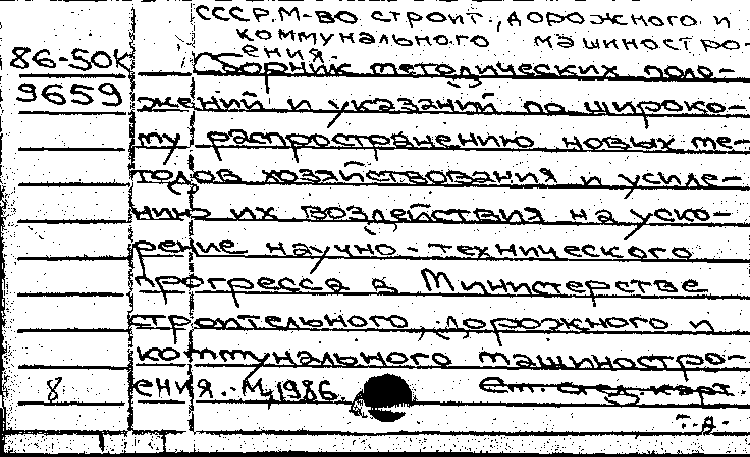 СССР. М-во строит., дорожного и
коммунального машиностро-
ения.
86-50К Сборник методических поло-
9659 жений и указаний по широко-
му распространению новых ме-
тодов хозяйствования и усиле-
нию их воздействия на уско-
рение научно-технического
прогресса в Министерстве
строительного, дорожного и
коммунального машиностро-
8 ения. - М, 1986. Ст. след. карт.